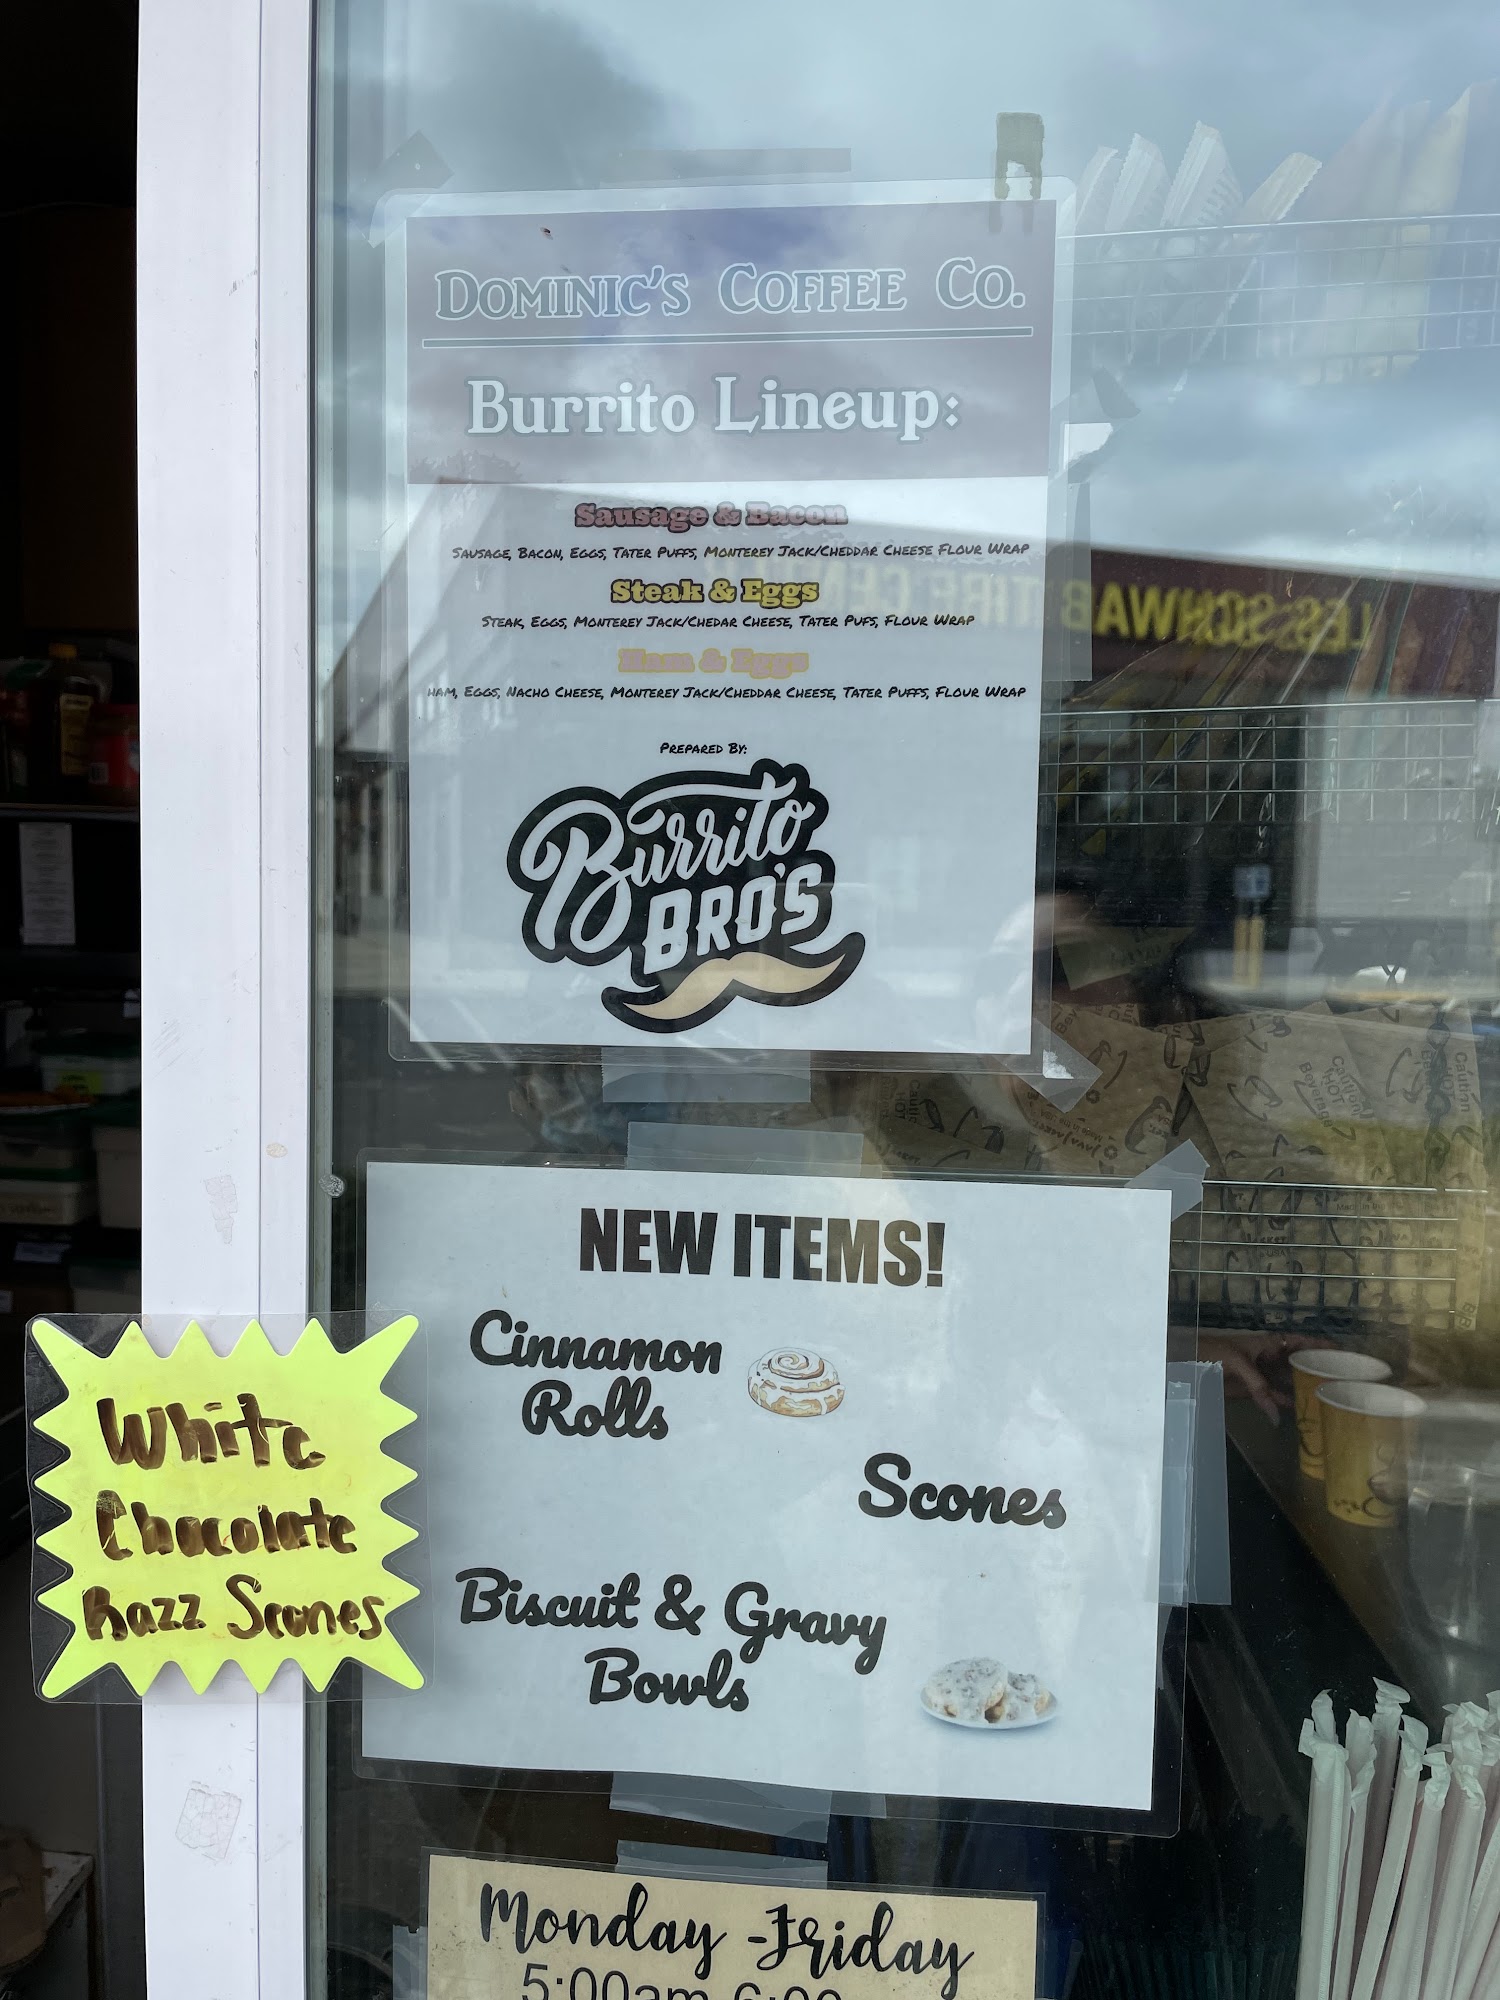 DOMINIC'S COFFEE CO.
Burrito Lineup:
Sausage & Bacon
SAUSAGE, BACON, EGGS, TATER PUFFS, MONTEREY JACK/CHEDDAR CHEESE FLOUR WRAP
Steak & Eggs
STEAK, EGGS, MONTEREY JACK/CHEDAR CHEESE, TATER PUFS, FLOUR WRAP
Ham & Eggs
HAM, EGGS, NACHO CHEESE, MONTEREY JACK/CHEDDAR CHEESE, TATER PUFFS, FLOUR WRAP
PREPARED BY:
Burrito
BRO'S
LES SCHWAB TIRE CENTER
Caution!
HOT
Beverage
NEW ITEMS!
Cinnamon
Rolls
Scones
Biscuit & Gravy
Bowls
White
Chocolate
Razz Scones
Monday - Friday
5:00am